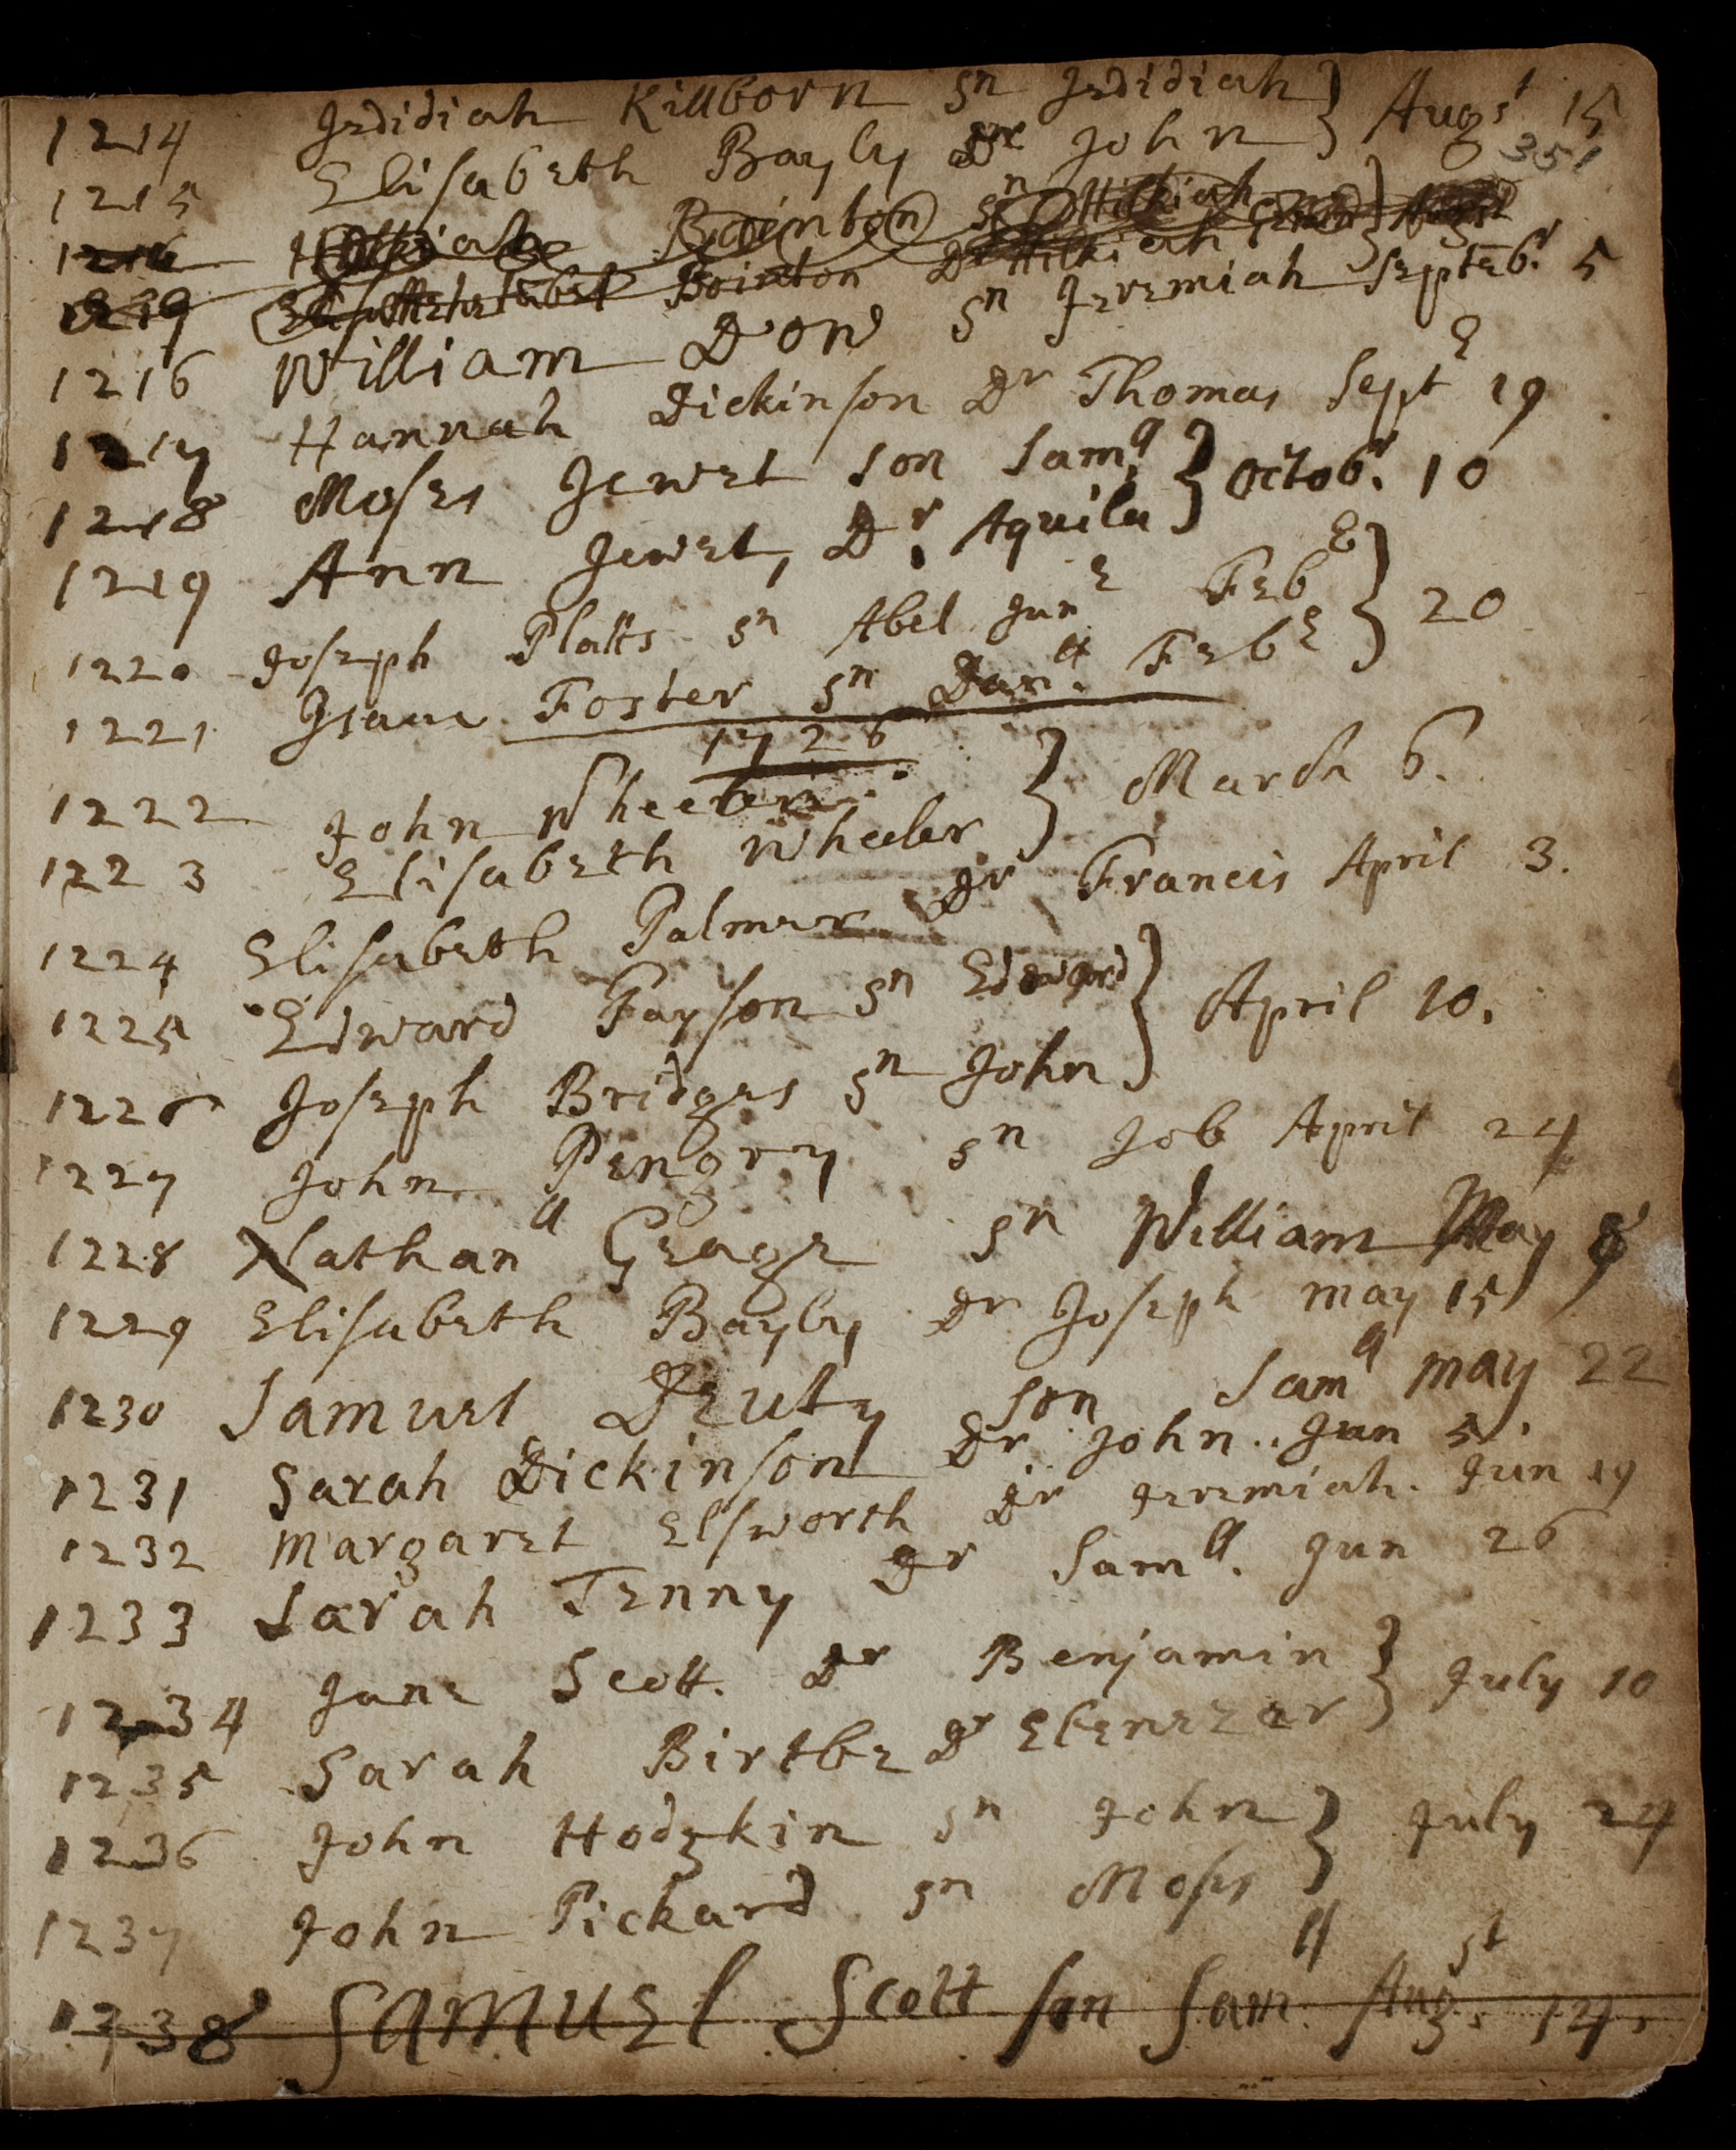 1214 Jedidiah Killborn sn Jedidiah } Augst 15
1215 Elisabeth Bayly Dr John }
351
1216 Hilkiah Bointon sn Hilkiah
Bointon Dr Hilkiah
1216 William Dow sn Jeremiah Septebr 5
1217 Hannah Dickinson Dr Thomas Septe 19
1218 Moses Jewet son Samll } Octobr. 10
1219 Ann Jewet, Dr. Aquila }
1220 Joseph Platts sn Abel Junr Febe } 20
1221 Isaac Foster sn Danll. Febe }
1726
1222 John Wheeler } March 6.
1223 Elisabeth Wheeler }
1224 Elisabeth Palmer Dr Francis April 3.
1225 Edward Payson sn Edward } April 10.
1226 Joseph Bridges sn John }
1227 John Pengry sn Job April 24
1228 Nathanll Geage sn William May 8
1229 Elisabeth Bayly Dr Joseph may 15
1230 Samuel Deuty son Samll may 22
1231 Sarah Dickinson Dr John.. Jun 5.
1232 Margaret Elsworth Dr Jeremiah. Jun 19
1233 Sarah Tenny Dr Samll. Jun 26
1234 Jane Scott. Dr Benjamin } July 10
1235 Sarah Birtbe Dr Ebenezer }
1236 John Hodgkin sn John } July 24
1237 John Pickard sn Moses }
1238 Samuel Scott son Samll Augst. 14.